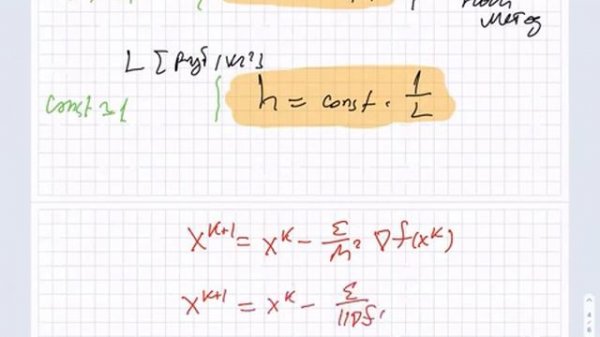 метод
L [руб/кг²]
const ≈ 1
h = const · 1/L
x^{k+1} = x^k − ε/M² ∇f(x^k)
x^{k+1} = x^k − ε/||∇f